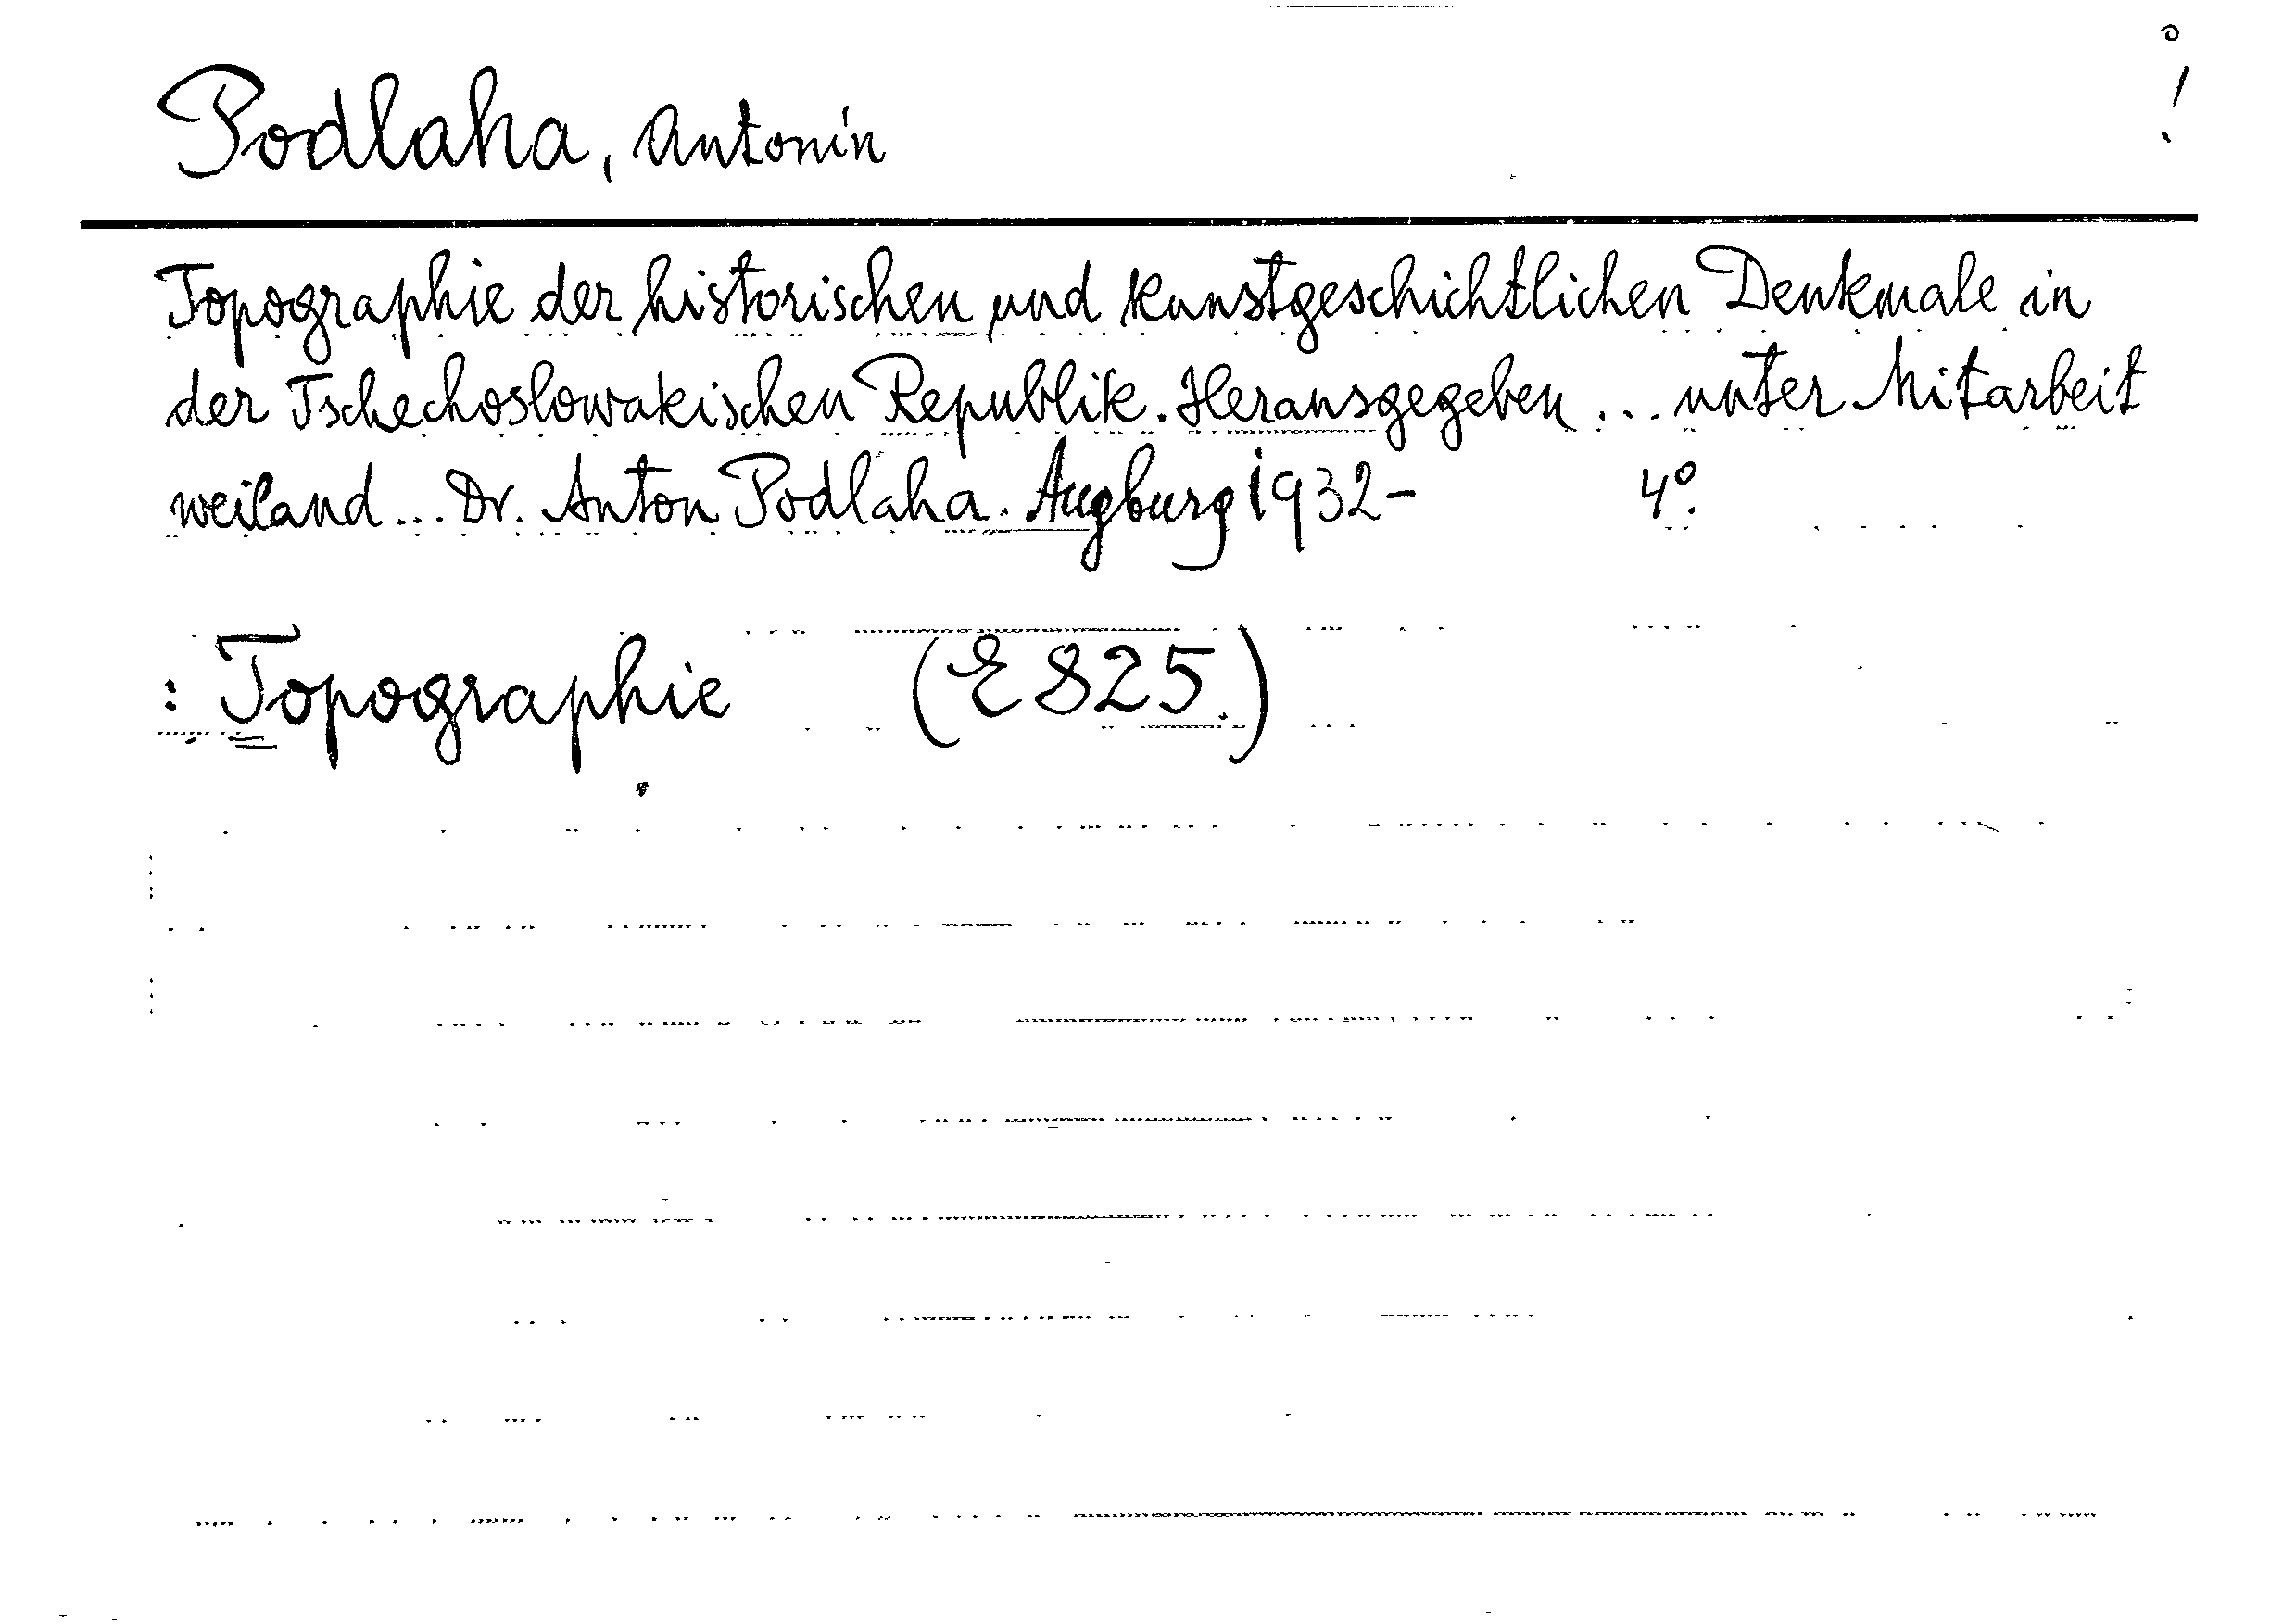 Podlaha, Antonín
Topographie der historischen und kunstgeschichtlichen Denkmale in
der Tschechoslowakischen Republik. Herausgegeben ... unter Mitarbeit
weiland ... Dr. Anton Podlaha. Augburg 1932- 4°.
: Topographie (E 825.)